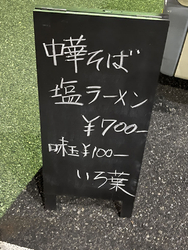 中華そば
塩ラーメン
¥700-
味玉¥100-
いろ葉